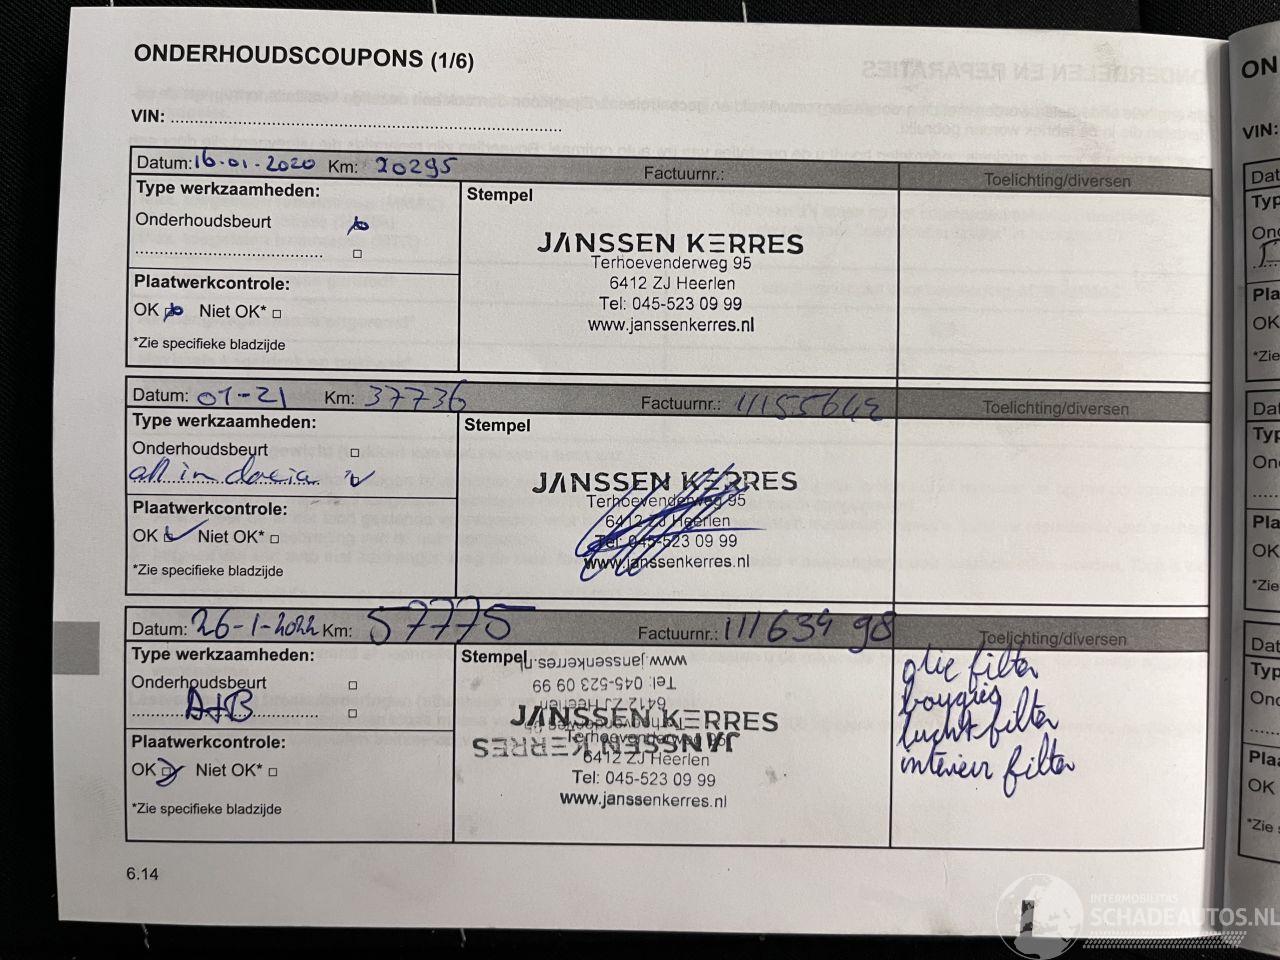 ONDERHOUDSCOUPONS (1/6)
VIN:
Datum: 16-01-2020 Km: 20295 Factuurnr.: Toelichting/diversen
Type werkzaamheden:
Onderhoudsbeurt
Plaatwerkcontrole:
OK Niet OK*
*Zie specifieke bladzijde
Stempel
JANSSEN KERRES
Terhoevenderweg 95
6412 ZJ Heerlen
Tel: 045-523 09 99
www.janssenkerres.nl
Datum: 01-21 Km: 37736 Factuurnr.: 11155642 Toelichting/diversen
Type werkzaamheden:
Onderhoudsbeurt
all in dacia
Plaatwerkcontrole:
OK Niet OK*
*Zie specifieke bladzijde
Stempel
JANSSEN KERRES
Terhoevenderweg 95
6412 ZJ Heerlen
Tel: 045-523 09 99
www.janssenkerres.nl
Datum: 26-1-2022 Km: 57775 Factuurnr.: 11163498 Toelichting/diversen
Type werkzaamheden:
Onderhoudsbeurt
A+B
Plaatwerkcontrole:
OK Niet OK*
*Zie specifieke bladzijde
Stempel
www.janssenkerres.nl
Tel: 045-523 09 99
6412 ZJ Heerlen
Terhoevenderweg 95
JANSSEN KERRES
JANSSEN KERRES
Terhoevenderweg 95
6412 ZJ Heerlen
Tel: 045-523 09 99
www.janssenkerres.nl
olie filter
bougies
lucht filter
interieur filter
6.14
ON
VIN:
INTERMOBILITAS
SCHADEAUTOS.NL